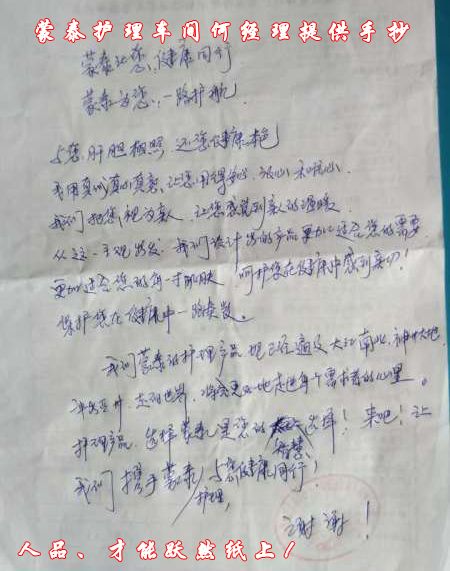 蒙泰护理车间何经理提供手抄
蒙泰让您,健康同行
蒙泰为您,一路护航
与您肝胆相照,还您健康本色
我用真诚真心真意,让您用得安心、放心和顺心
我们把您视为亲人,让您感觉到亲人的温暖
从这一主观出发,我们设计出的产品更加适合您的需要
更加适合您的每一寸肌肤,呵护您在健康中感到亲切!
保护您在健康中一路焕发。
我们蒙泰的护理产品现已经遍及大江南北,神州大地
走向世界,将会更好地走进每个需求者的心里。
护理产品,选择蒙泰是您的智慧选择!来吧!让
我们携手蒙泰护理,与您健康同行!
谢谢!
人品、才能跃然纸上!